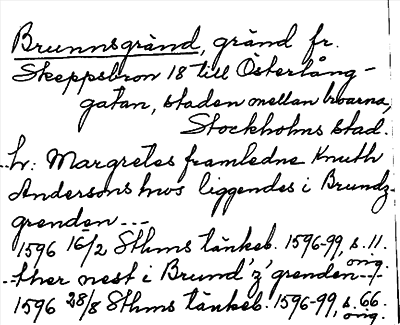 Brunnsgränd, gränd fr.
Skeppsbron 18 till Österlång-
gatan, staden mellan broarna,
Stockholms stad.
..hr: Margretes framledne Knuth
Andersons hws liggendes i Brundz-
grenden ---
1596 16/2 Sthms tänkeb. 1596-99, s. 11.
orig.
..ther nest i Brund'z'grenden--/-
1596 28/8 Sthms tänkeb. 1596-99, s. 66.
orig.